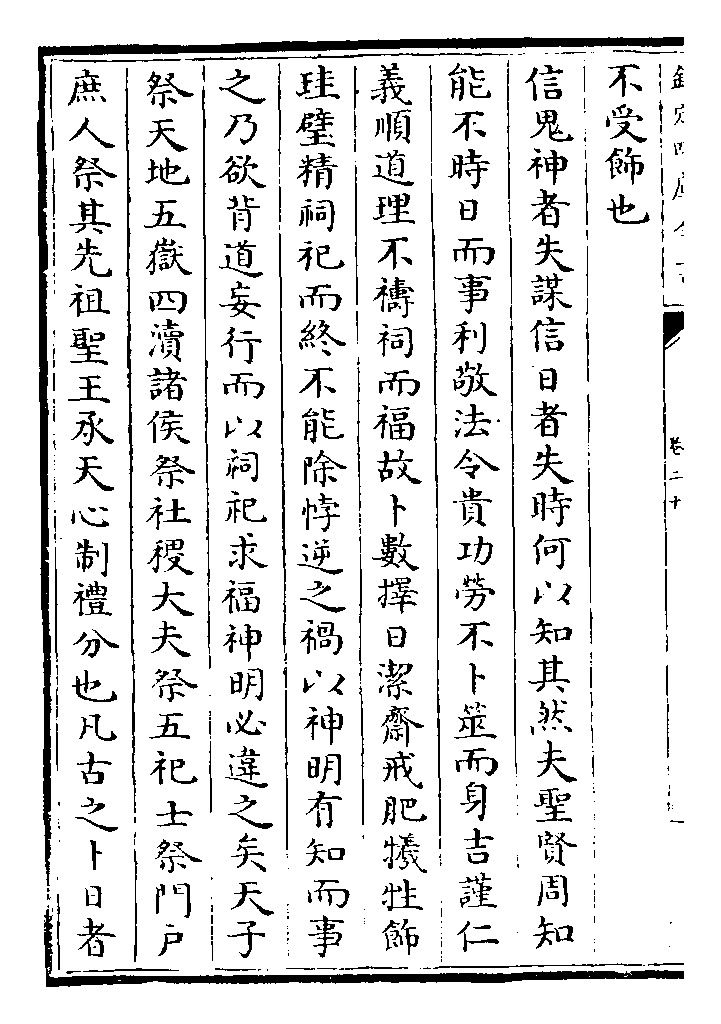 欽定四庫全書
卷二十
不受飾也
信鬼神者失謀信日者失時何以知其然夫聖賢周知
能不時日而事利敬法令貴功勞不卜筮而身吉謹仁
義順道理不禱祠而福故卜數擇日潔齋戒肥犧牲飾
珪璧精祠祀而終不能除悖逆之禍以神明有知而事
之乃欲背道妄行而以祠祀求福神明必違之矣天子
祭天地五嶽四瀆諸侯祭社稷大夫祭五祀士祭門戶
庶人祭其先祖聖王承天心制禮分也凡古之卜日者